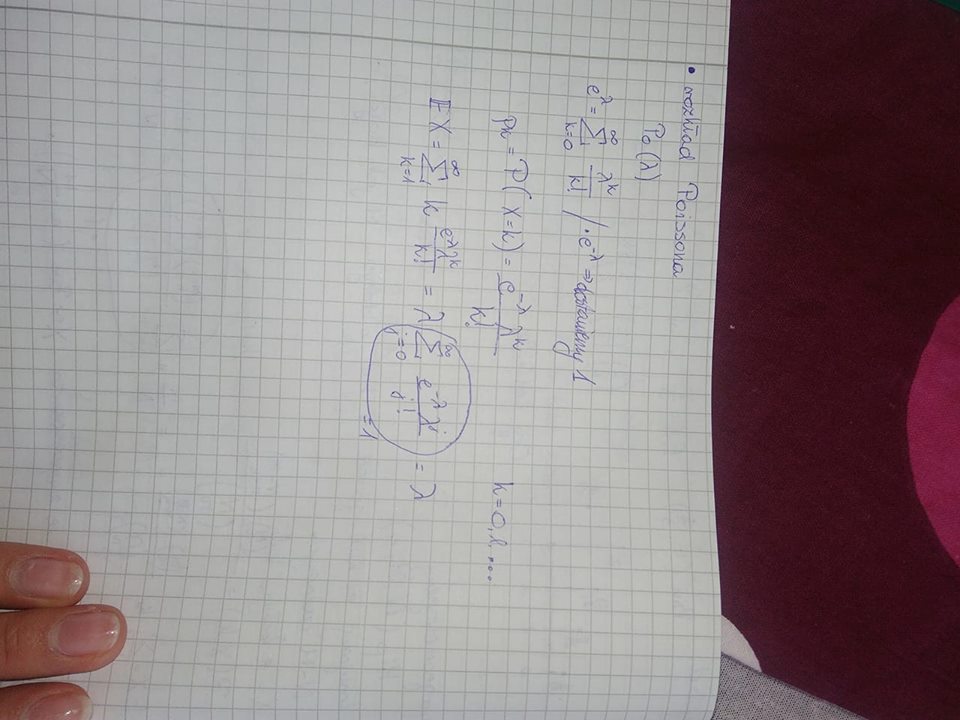 • rozkład Poissona
Po(λ)
e^λ = ∑_{k=0}^{∞} λ^k / k! / · e^{-λ} ⇒ dostaniemy 1
p_k = P(X=k) = e^{-λ} λ^k / k! k = 0, 1, ...
EX = ∑_{k=1}^{∞} k e^{-λ} λ^k / k! = λ ∑_{j=0}^{∞} e^{-λ} λ^j / j! = λ
= 1